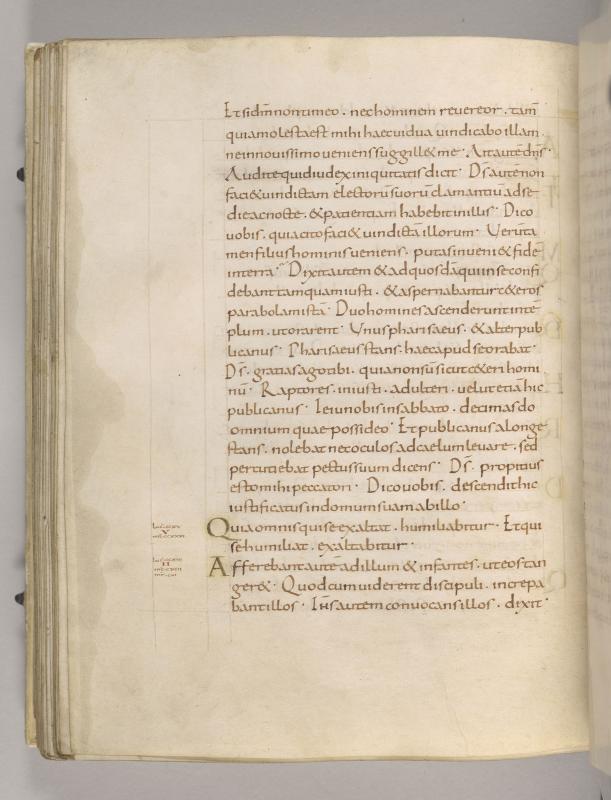 Et si dm̄ non timeo . nec hominem revereor . tam̄
quia molesta est mihi haec vidua vindicabo illam .
ne in novissimo veniens suggill& me · Ait autē dn̄s ·
Audite quid iudex iniquitatis dicit · Ds̄ autē non
faci& vindictam electorū suorū clamantiū ad se
die ac nocte . & patientiam habebit in illis · Dico
vobis . quia cito faci& vindictā illorum · Verūta
men filius hominis veniens . putas inveni& fidē
in terra · Dixit autem & ad quosdā qui in se confi
debant tamquam iusti . & aspernabantur c&eros
parabolam istā · Duo homines ascenderunt in tē
plum . ut orarent · Unus pharisaeus . & alter pub
licanus · Pharisaeus stans . haec apud se orabat ·
Ds̄ . gratias ago tibi . quia non sū sicut c&eri homi
nū · Raptores . iniusti . adulteri . velut etiā hic
publicanus · Ieiuno bis in sabbato . decimas do
omnium quae possideo · Et publicanus a longe
stans . nolebat nec oculos ad caelum levare . sed
percutiebat pectus suum dicens · Ds̄ . propitius
esto mihi peccatori · Dico vobis . descendit hic
iustificatus in domum suam ab illo ·
Quia omnis qui se exaltat . humiliabitur · Et qui
se humiliat . exaltabitur ·
Afferebant autē ad illum & infantes . ut eos tan
ger& · Quod cum viderent discipuli . increpa
bant illos · Ih̄s autem convocans illos . dixit ·